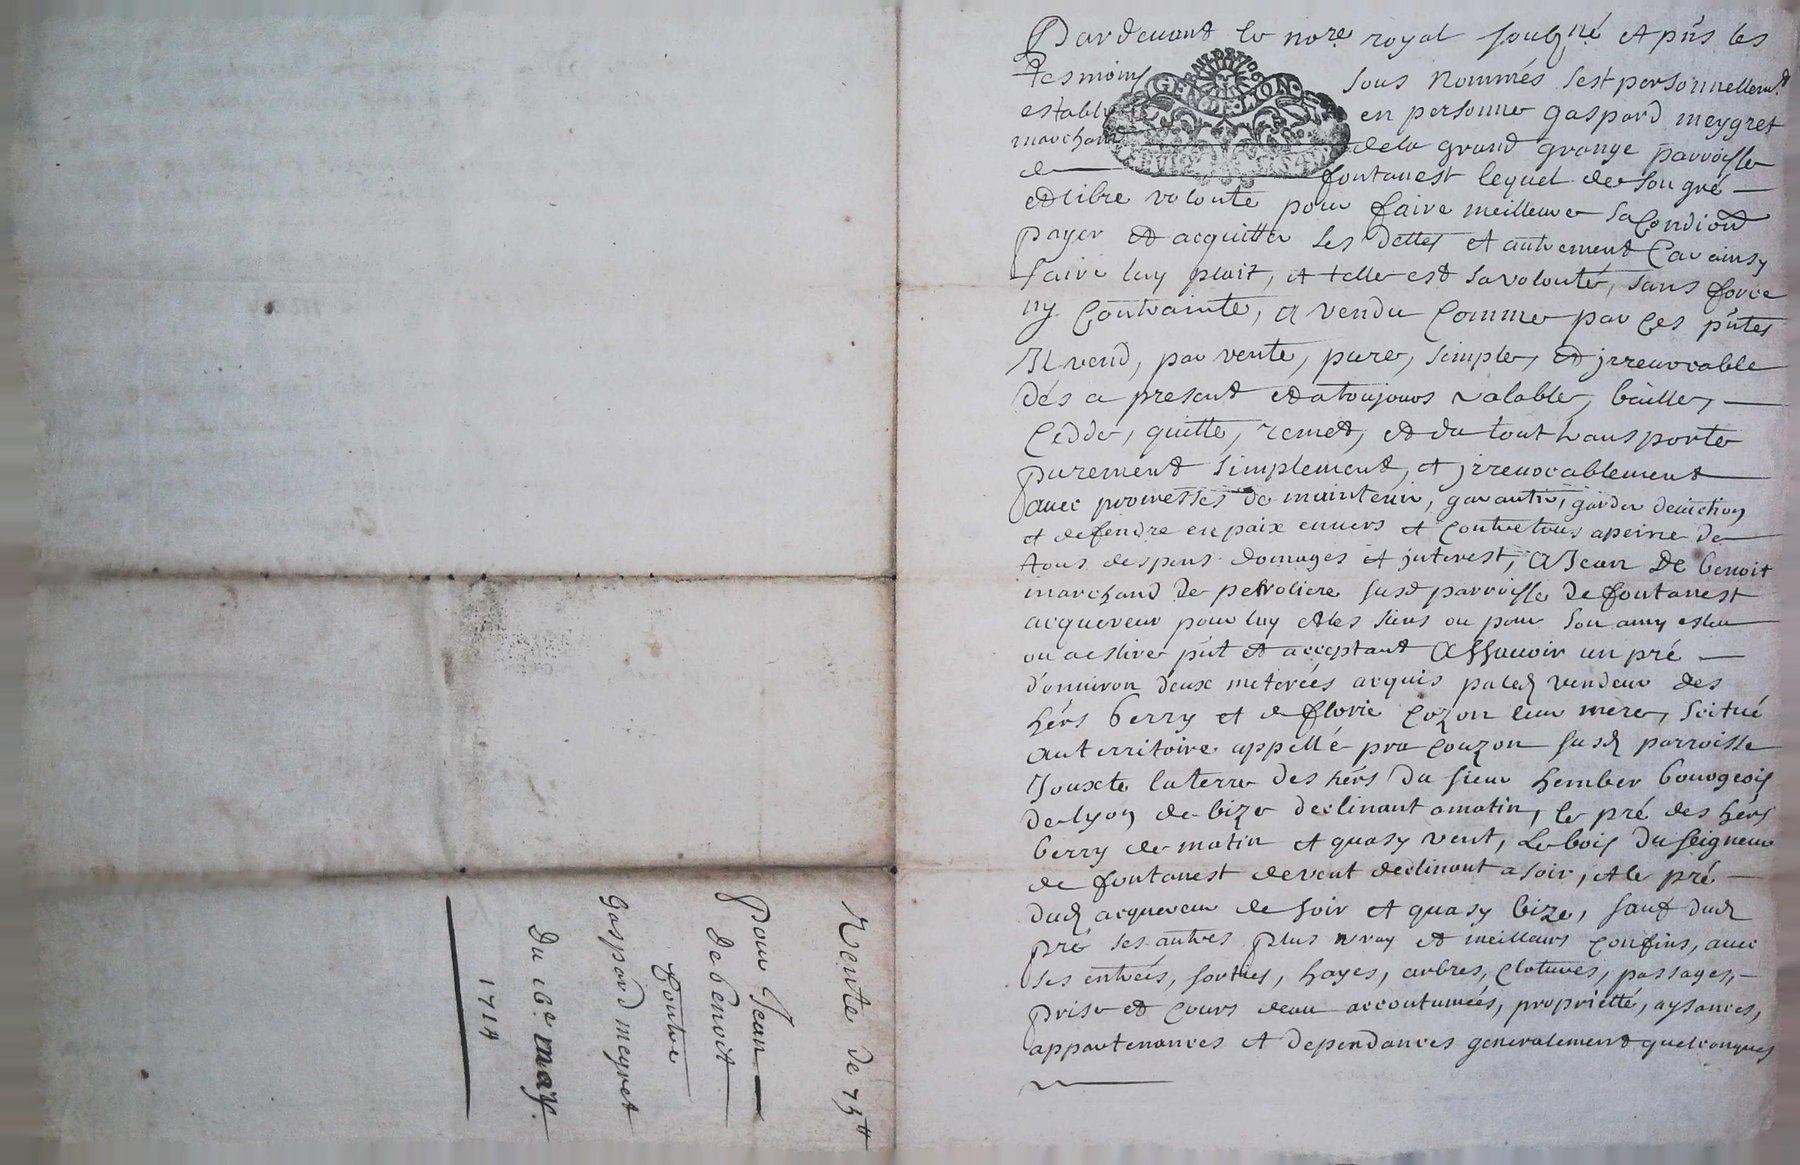 Vente de 75ᵗᵗ
Pour Jean
De benoit
Contre
Gaspard meyret
Du 16e may
1714
Pardevant le nore royal soubzné et pñs les
tesmoins sous nommés sest personnellemt
estably en personne gaspard meygret
marchand de la grand grange parroisse
de fontanest lequel de son gré
et libre volonté pour faire meilleure sa Condion
payer et acquitter ses dettes et autrement Car ainsy
faire luy plait, et telle est sa volonté, sans force
ny Contrainte, a vendu Comme par Ces pñtes
Il vend, par vente, pure, simple, et jrreuocable
Dés a present et a toujours valable, bailler,
Cedde, quitte, remet, et du tout transporte
purement simplement, et jrreuocablement
auec promesses de maintenir, garantir, garder deuiction
et defendre en paix enuers et Contre tous a peine de
tous despens domages et jnterest, A Jean De benoit
marchand de petroliere susd parroisse De fontanest
acquereur pour luy et les siens ou pour son amy esleu
ou a eslire pñt et acceptant Assauoir un pré
d'enuiron deux meterées acquis par led vendeur des
hérs berry et de florie Cozon leur mere, scitué
au territoire appellé pra Couzon susd parroisse
Jouxte la terre des hérs du sieur hember bourgeois
de lyon de bize declinant a matin, le pré des hérs
berry de matin et quasy vent, Le bois du seigneur
de fontanest de vent declinant a soir, et le pré
dud acquereur de soir et quasy bize, sauf dud
pré ses autres plus vray et meilleurs Confins, auec
ses entrées, sorties, hayes, arbres, Clotures, passages,
prise et Cours deau accoutumées, proprietté, aysances,
appartenances et dependances generalement quelconques